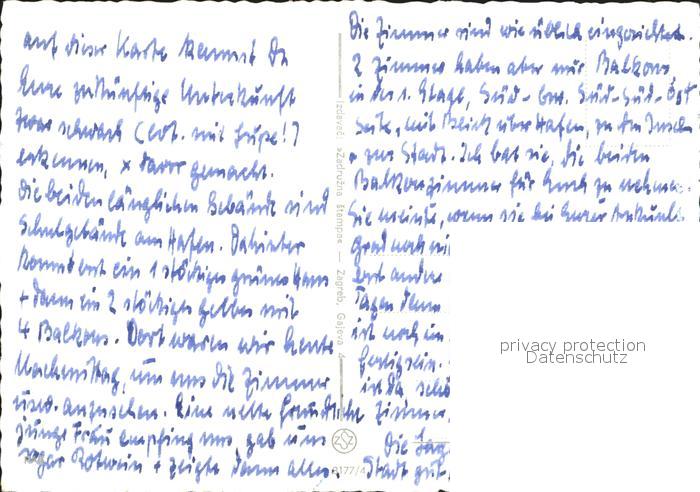 auf dieser Karte kannst Du
Eure zukünftige Unterkunft
zwar schwach (evt. mit Lupe!)
erkennen, x davor gemacht.
Die beiden länglichen Gebäude sind
Schulgebäude am Hafen. Dahinter
kommt erst ein 1 stöckiges grünes Haus
+ dann ein 2 stöckiges gelbes mit
4 Balkons. Dort waren wir heute
Nachmittag, um uns die Zimmer
usw. anzusehen. Eine nette freundliche
junge Frau empfing uns, gab uns
sogar Rotwein + zeigte dann alles.
Izdavač: »Zadružna štampa« — Zagreb, Gajeva 4
3177/4
Die Zimmer sind wie üblich eingerichtet.
2 Zimmer haben aber nur Balkons
in der 1. Etage, Süd- bzw. Süd-Süd-Ost
Seite, mit Blick über Hafen, zu den Inseln
+ zur Stadt. Ich bat sie, die beiden
Balkonzimmer für Euch zu nehmen.
Sie meinte, wenn sie bei Eurer Ankunft
grad noch
erst andre
Tagen dann
ist noch im
fertig sein.
ist da schö
Zimmer.
Die Lag
Stadt gut
privacy protection
Datenschutz